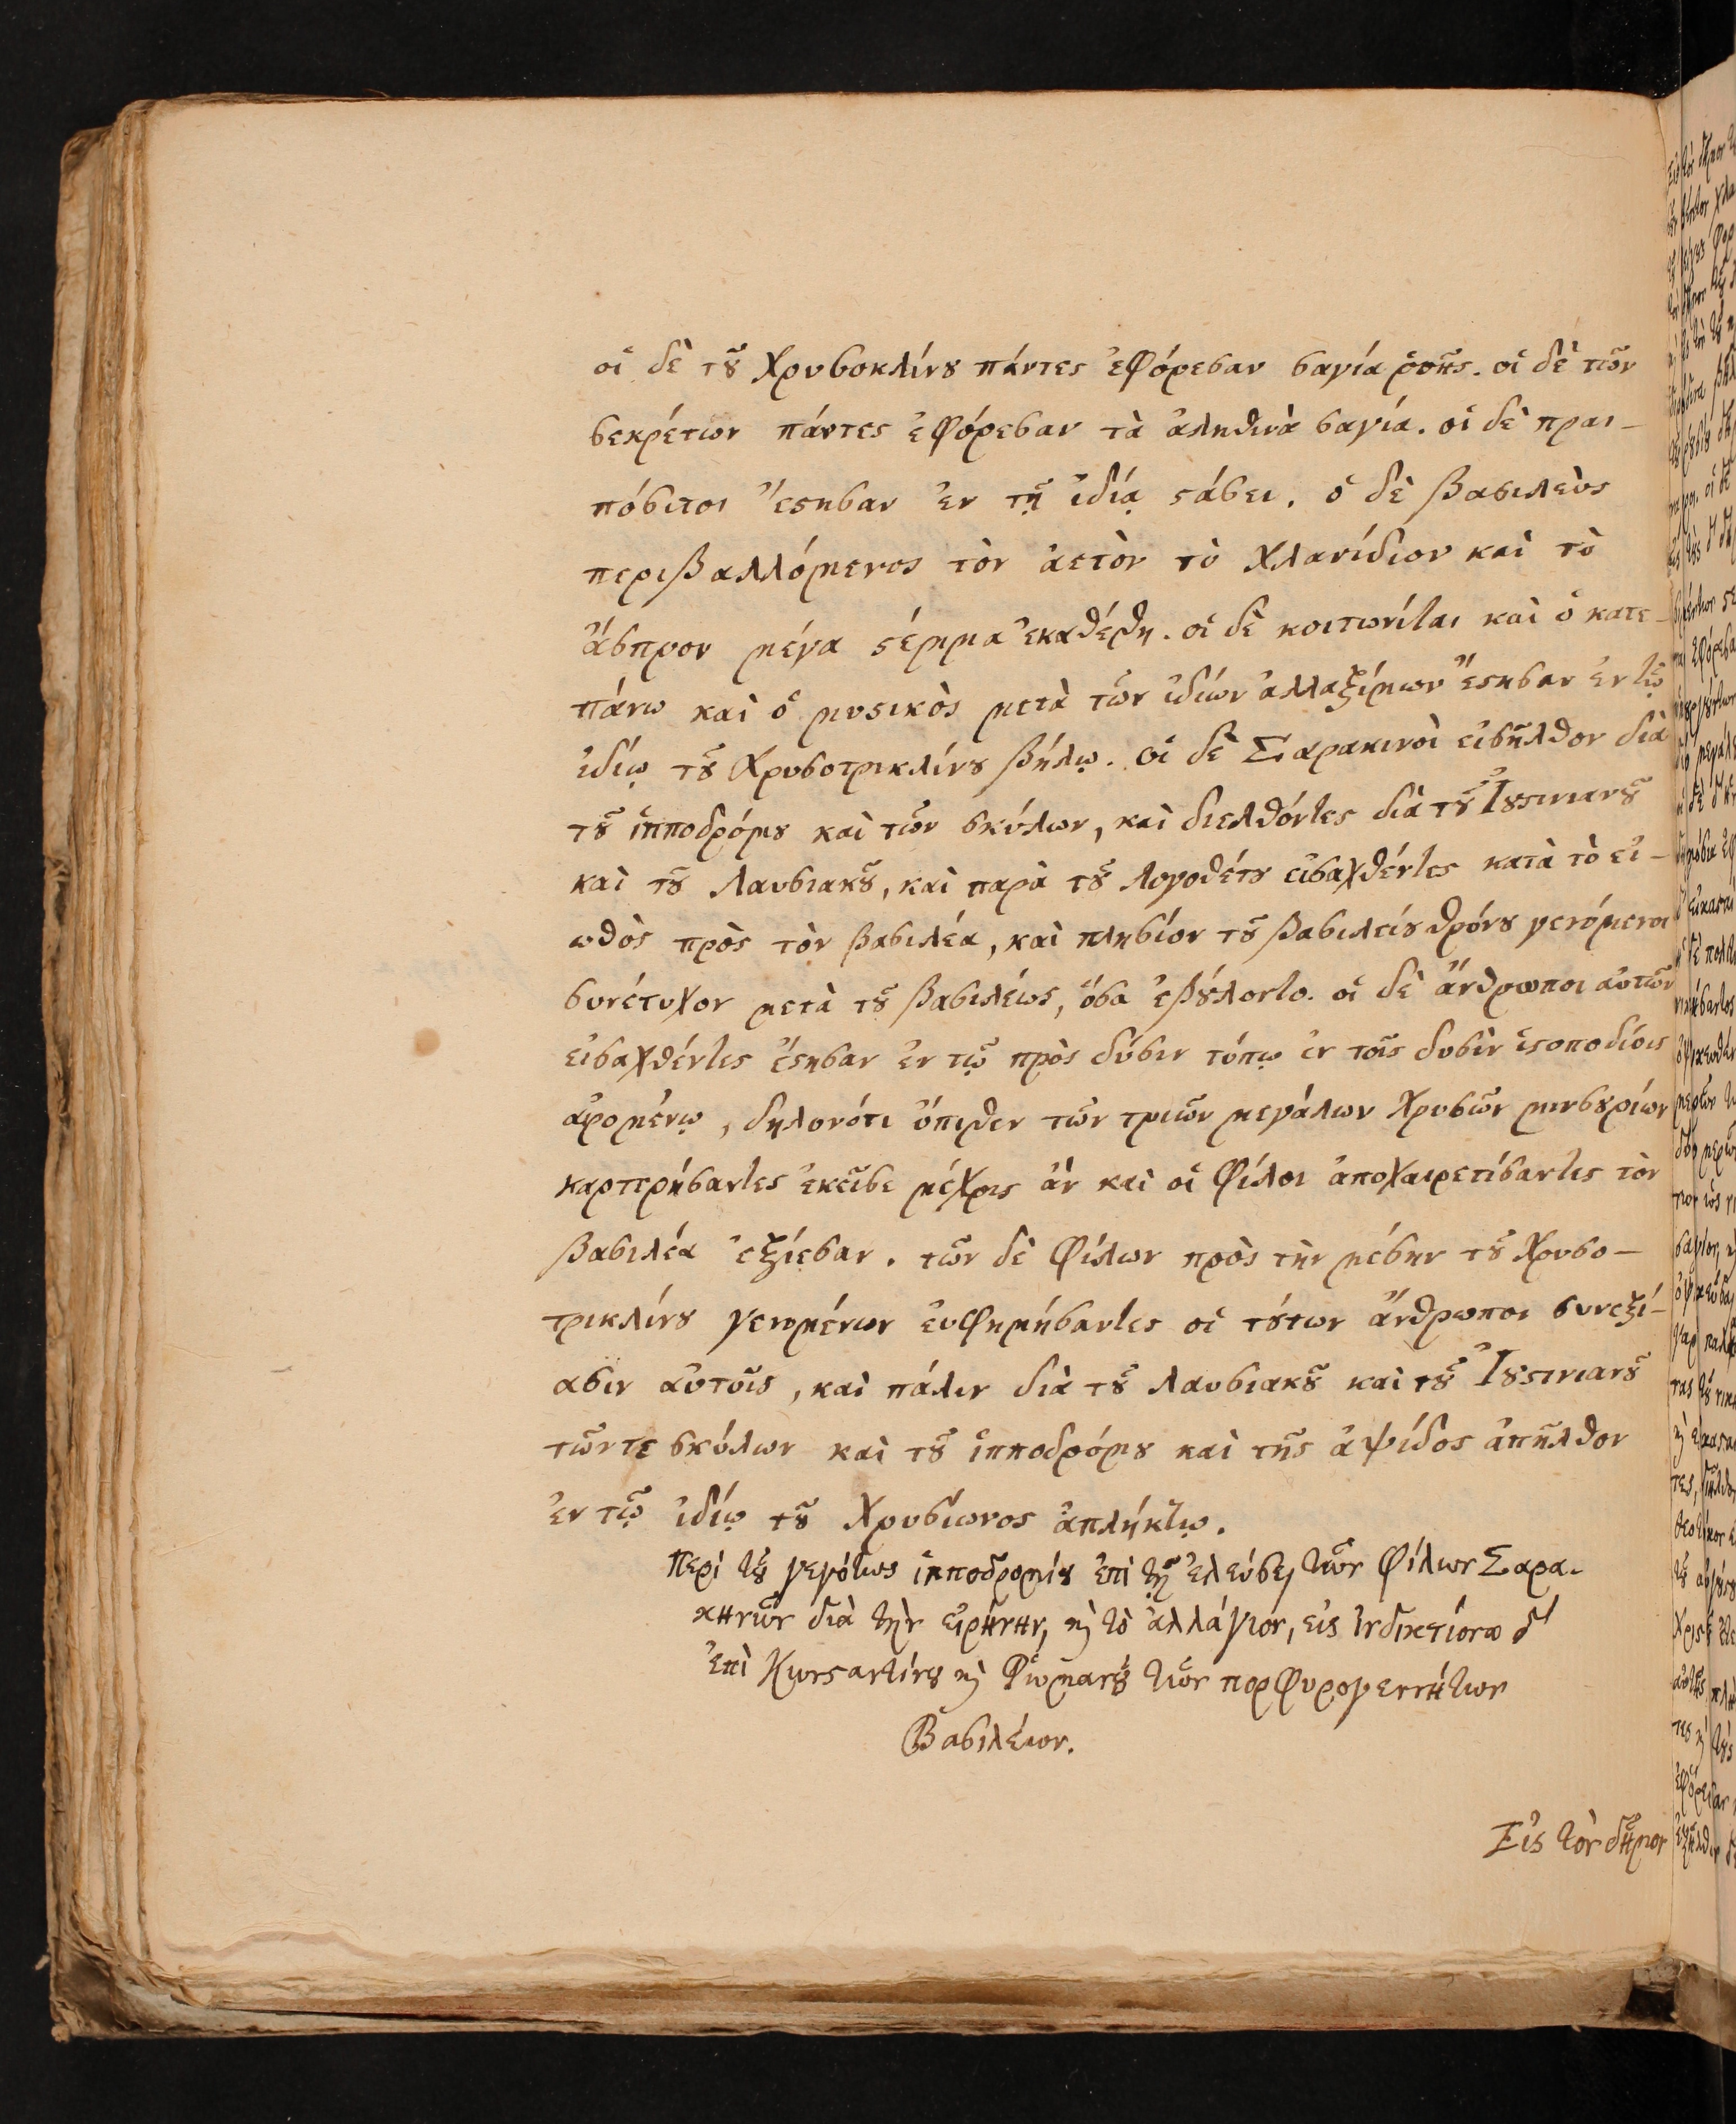 οἱ δὲ τȣ͂ Χρυσοκλίνȣ πάντες ἐφόρεσαν σαγία ῥοῆς. οἱ δὲ τῶν
σεκρέτων πάντες ἐφόρεσαν τὰ ἀληθινὰ σαγία. οἱ δὲ πραι-
πόσιτοι ἔϛησαν ἐν τῇ ἰδίᾳ ϛάσει. ὁ δὲ βασιλεὺς
περιβαλλόμενος τὸν ἀετὸν τὸ χλανίδιον καὶ τὸ
ἄσπρον μέγα ϛέμμα ἐκαθέσθη. οἱ δὲ κοιτωνίται καὶ ὁ κατε-
πάνω καὶ ὁ μυϛικὸς μετὰ τῶν ἰδίων ἀλλαξίμων ἔϛησαν ἐν τῷ
ἰδίῳ τȣ͂ Χρυσοτρικλίνȣ βήλῳ. οἱ δὲ Σαρακινοὶ εἰσῆλθον διὰ
τȣ͂ ἱπποδρόμȣ καὶ τῶν σκύλων, καὶ διελθόντες διὰ τȣ͂ Ἰȣϛινιανȣ͂
καὶ τȣ͂ Λαυσιακȣ͂, καὶ παρὰ τȣ͂ λογοθέτȣ εἰσαχθέντες κατὰ τὸ εἰ-
ωθὸς πρὸς τὸν βασιλέα, καὶ πλησίον τȣ͂ βασιλείȣ θρόνȣ γενόμενοι
συνέτυχον μετὰ τȣ͂ βασιλέως, ὅσα ἐβȣ́λοντο. οἱ δὲ ἄνθρωποι αὐτῶν
εἰσαχθέντες ἔϛησαν ἐν τῷ πρὸς δύσιν τόπῳ ἐν τοῖς δυσὶν ἱϛοποδίοις
αἰρομένῳ, δηλονότι ὄπισθεν τῶν τριῶν μεγάλων χρυσῶν μινσȣρίων
καρτερήσαντες ἐκεῖσε μέχρις ἂν καὶ οἱ φίλοι ἀποχαιρετίσαντες τὸν
βασιλέα ἐξίεσαν. τῶν δὲ φίλων πρὸς τὴν μέσην τȣ͂ Χρυσο-
τρικλίνȣ γενομένων εὐφημήσαντες οἱ τȣ́των ἄνθρωποι συνεξί-
ασιν αὐτοῖς, καὶ πάλιν διὰ τȣ͂ Λαυσιακȣ͂ καὶ τȣ͂ Ἰȣϛινιανȣ͂
τῶντε σκύλων καὶ τȣ͂ ἱπποδρόμȣ καὶ τῆς ἀψίδος ἀπῆλθον
ἐν τῷ ἰδίῳ τȣ͂ Χρυσίωνος ἀπλήκτῳ.
Περὶ τȣ͂ γεγότως ἱπποδρομίȣ ἐπὶ τῇ ἐλεύσει τῶν φίλων Σαρα-
κηνῶν διὰ τὴν εἰρήνην, ϗ τὸ ἀλλάγιον, εἰς ἰνδικτίονα δʹ
ἐπὶ Κωνϛαντίνȣ ϗ Ῥωμανȣ͂ τῶν πορφυρογεννήτων
Βασιλέων.
Εἰς τὸν δῆμον